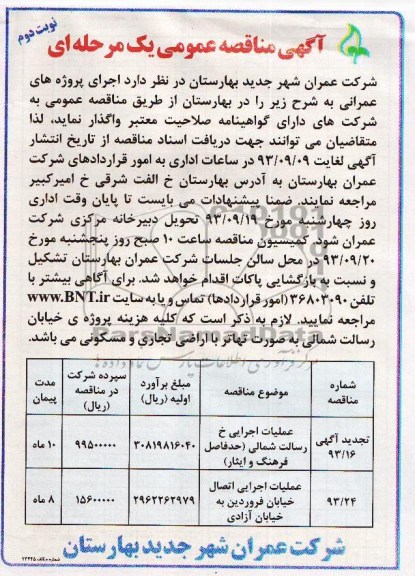 نوبت دوم
آگهی مناقصه عمومی یک مرحله ای
شرکت عمران شهر جدید بهارستان در نظر دارد اجرای پروژه های
عمرانی به شرح زیر را در بهارستان از طریق مناقصه عمومی به
شرکت های دارای گواهینامه صلاحیت معتبر واگذار نماید، لذا
متقاضیان می توانند جهت دریافت اسناد مناقصه از تاریخ انتشار
آگهی لغایت ۹۳/۰۹/۰۹ در ساعات اداری به امور قراردادهای شرکت
عمران بهارستان به آدرس بهارستان خ الفت شرقی خ امیرکبیر
مراجعه نمایند. ضمنا پیشنهادات می بایست تا پایان وقت اداری
روز چهارشنبه مورخ ۹۳/۰۹/۱۹ تحویل دبیرخانه مرکزی شرکت
عمران شود. کمیسیون مناقصه ساعت ۱۰ صبح روز پنجشنبه مورخ
۹۳/۰۹/۲۰ در محل سالن جلسات شرکت عمران بهارستان تشکیل
و نسبت به بازگشایی پاکات اقدام خواهد شد. برای آگاهی بیشتر با
تلفن ۳۶۸۰۳۰۹۰ (امور قراردادها) تماس و یا به سایت www.BNT.ir
مراجعه نمایید. لازم به ذکر است که کلیه هزینه پروژه ی خیابان
رسالت شمالی به صورت تهاتر با اراضی تجاری و مسکونی می باشد.
شماره مناقصه | موضوع مناقصه | مبلغ برآورد اولیه (ریال) | سپرده شرکت در مناقصه (ریال) | مدت پیمان
تجدید آگهی ۹۳/۱۶ | عملیات اجرایی خ رسالت شمالی (حدفاصل فرهنگ و ایثار) | ۳۰۸۱۹۸۱۶۰۴۰ | ۹۹۵۰۰۰۰۰ | ۱۰ ماه
۹۳/۲۴ | عملیات اجرایی اتصال خیابان فروردین به خیابان آزادی | ۲۹۶۲۲۶۲۹۷۹ | ۱۵۶۰۰۰۰۰ | ۸ ماه
شرکت عمران شهر جدید بهارستان
ParsNamadData